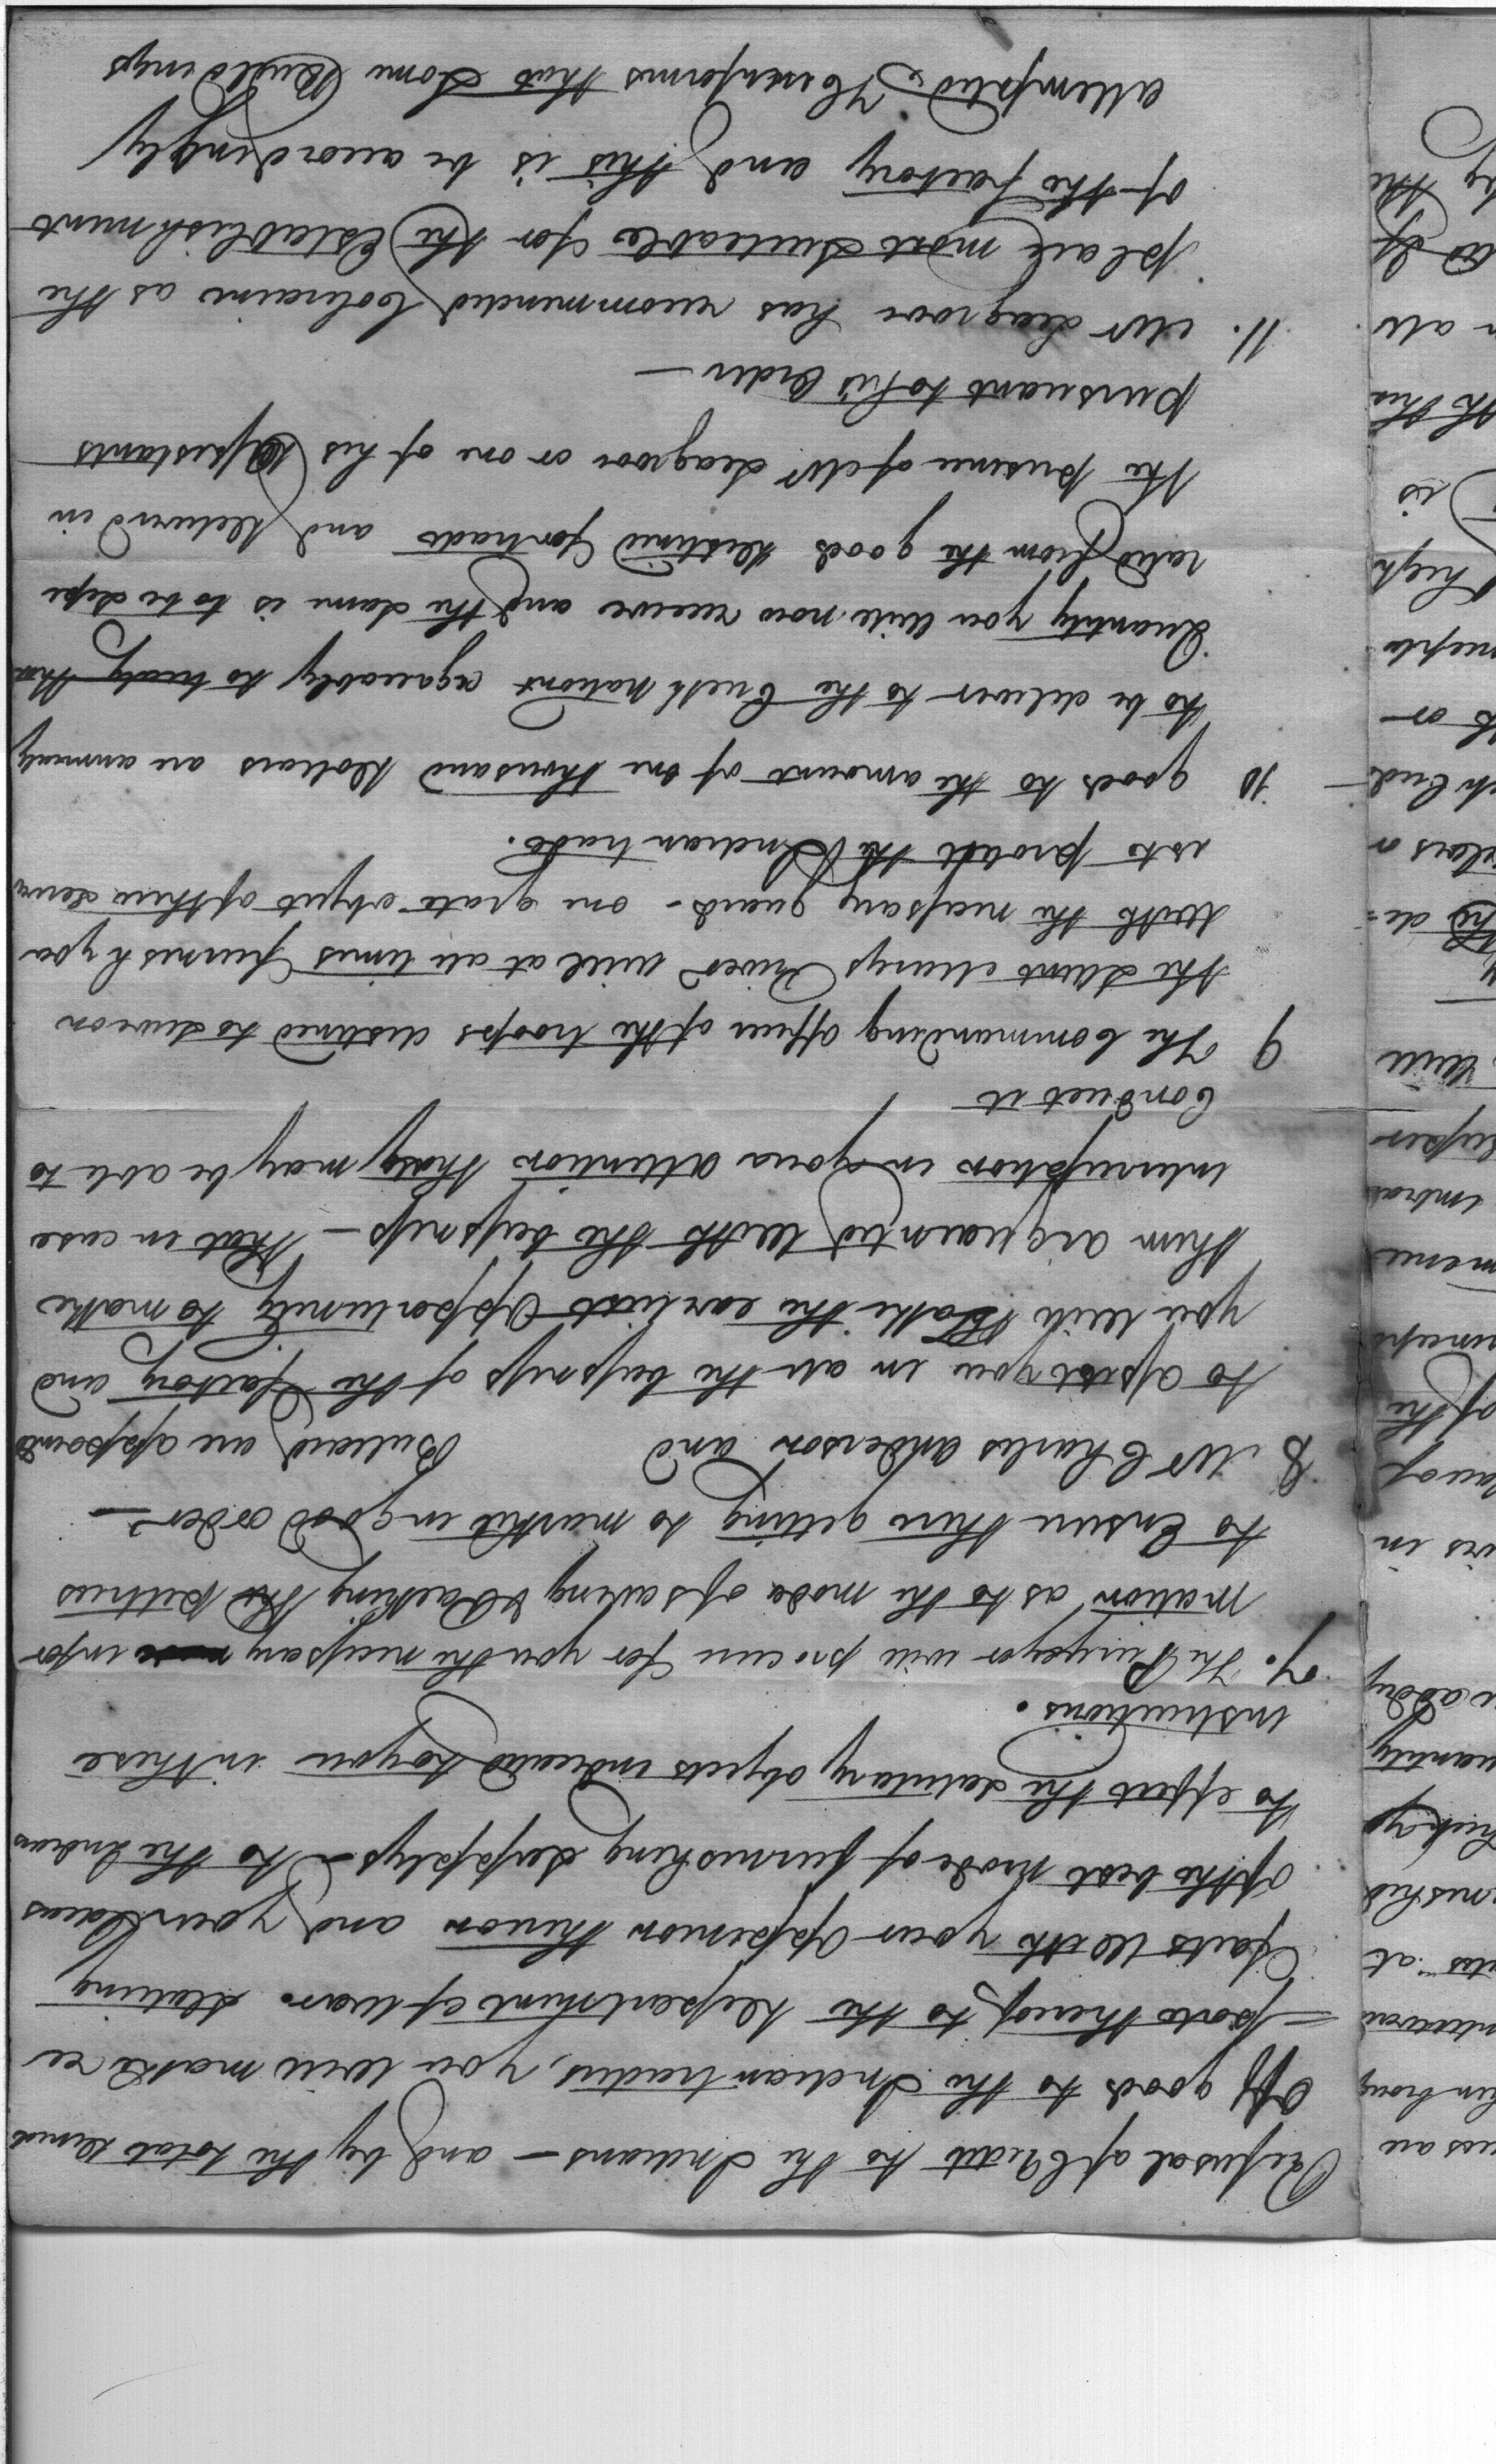 Refusal of Credit to the Indians – and by the total denial
Off goods to the Indian traders, you will make re
=ports thereof to the Department of war. stating
facts With your Oppinion thereon and your Ideas
of the best mode of furnishing supplys – to the Indians
to effect the salutary objects indicated to you in these
instructions.
7. The Purveyor will procure for you the nessary infor
mation as to the mode of saving & Packing the Peltries
to Ensure there getting to market in good order –
8 Mr Charles Anderson and Bullard are appointed
to assist you in all the bussness of the factory and
you will Take the earliest Opportunity to make
them acquainted with the bussness – that in case
interruption in your attention they may be able to
Conduct it
9 The Commanding officer of the troops destined to serve on
the Saint Marys River will at all times furnish you
With the nessary guard – one grate object of there
is to protect the Indian trade.
10 goods to the amount of one thousand Dollars are annually
to be deliver to the Creek Nations agreeably to treaty
Quantity you will now receive and the same is to be sepe
rated from the goods destined for trade and Delivered in
the presence of Mr Seagrove or one of his Assistants
pursuant to his Order –
11. Mr Seagrove has recommended Colerain as the
place most Suteable for the Establishment
of the factory and this is be accordingly
attempted, He informs that Some Buildings